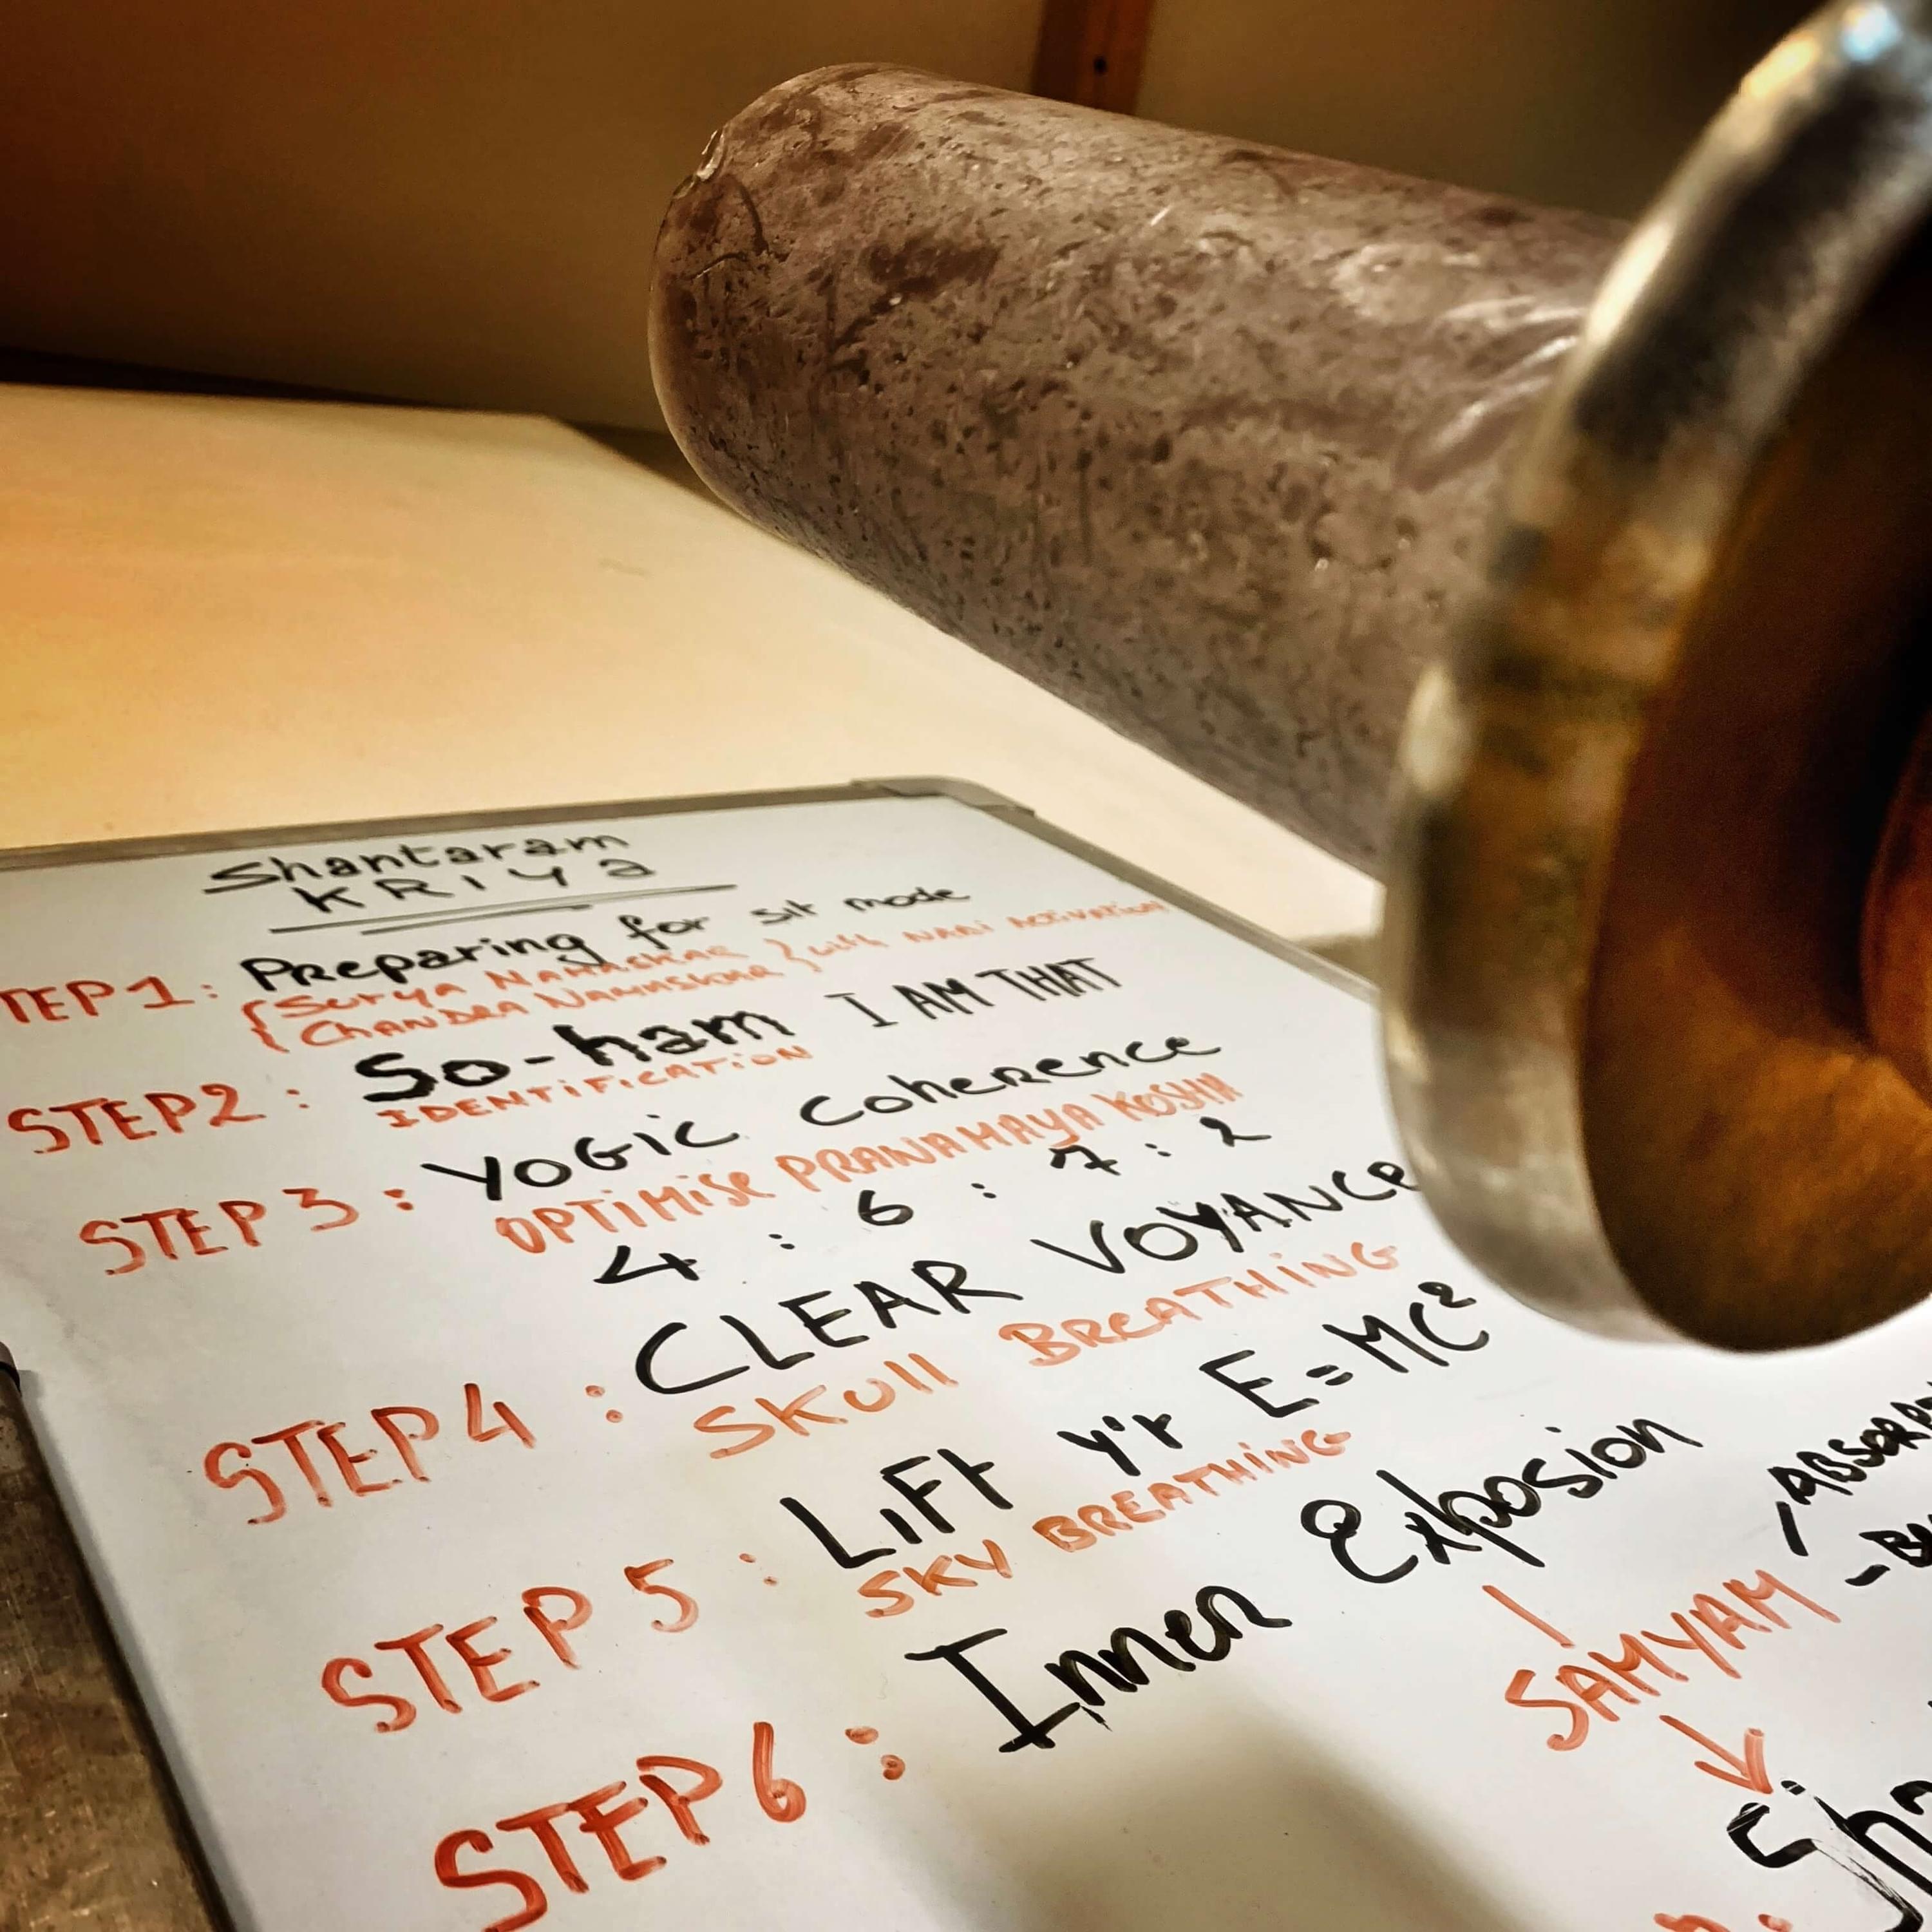 Shantaram
KRIYA
TEP1: Preparing for sit mode
{SURYA NAMASKAR } with NADI ACTIVATION
{CHANDRA NAMASKAR
STEP2: So-ham I AM THAT
IDENTIFICATION
STEP3: YOGIC Coherence
OPTIMISE PRANAMAYA KOSHA
4 : 6 : 7 : 2
STEP4: CLEAR VOYANCe
SKull BREATHING
STEP 5: LiFt y'r E=MC²
SKY BREATHING
STEP6: Inner Exposion
SAMYAM